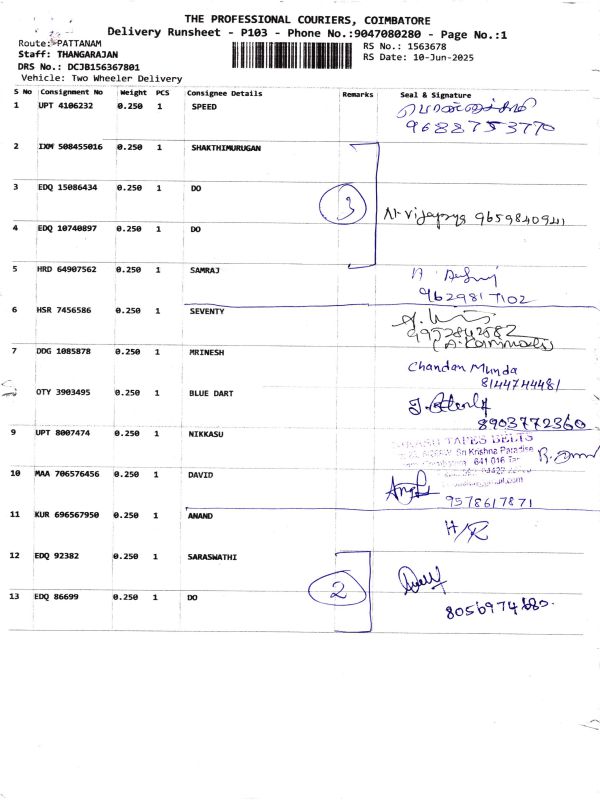 THE PROFESSIONAL COURIERS, COIMBATORE
Delivery Runsheet - P103 - Phone No.:9047080280 - Page No.:1
Route: PATTANAM
RS No.: 1563678
Staff: THANGARAJAN
RS Date: 10-Jun-2025
DRS No.: DCJB156367801
Vehicle: Two Wheeler Delivery
S No Consignment No Weight PCS Consignee Details Remarks Seal & Signature
1 UPT 4106232 0.250 1 SPEED
9688753770
2 IXM 508455016 0.250 1 SHAKTHIMURUGAN
3 EDQ 15086434 0.250 1 DO
3 N. Vijayya 9659840941
4 EDQ 10740897 0.250 1 DO
5 HRD 64907562 0.250 1 SAMRAJ
9629817102
6 HSR 7456586 0.250 1 SEVENTY
9952842582
7 DDG 1085878 0.250 1 MRINESH
Chandan Munda
8144744481
OTY 3903495 0.250 1 BLUE DART
8903772360
9 UPT 8007474 0.250 1 NIKKASU
TAPES BELTS
Sri Krishna Paradise
641 016
10 MAA 706576456 0.250 1 DAVID
9578617871
11 KUR 696567950 0.250 1 ANAND
H/R
12 EDQ 92382 0.250 1 SARASWATHI
2
13 EDQ 86699 0.250 1 DO
8056974680.